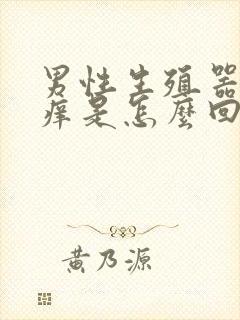 男性生殖器
痒是怎麼回
黄乃源